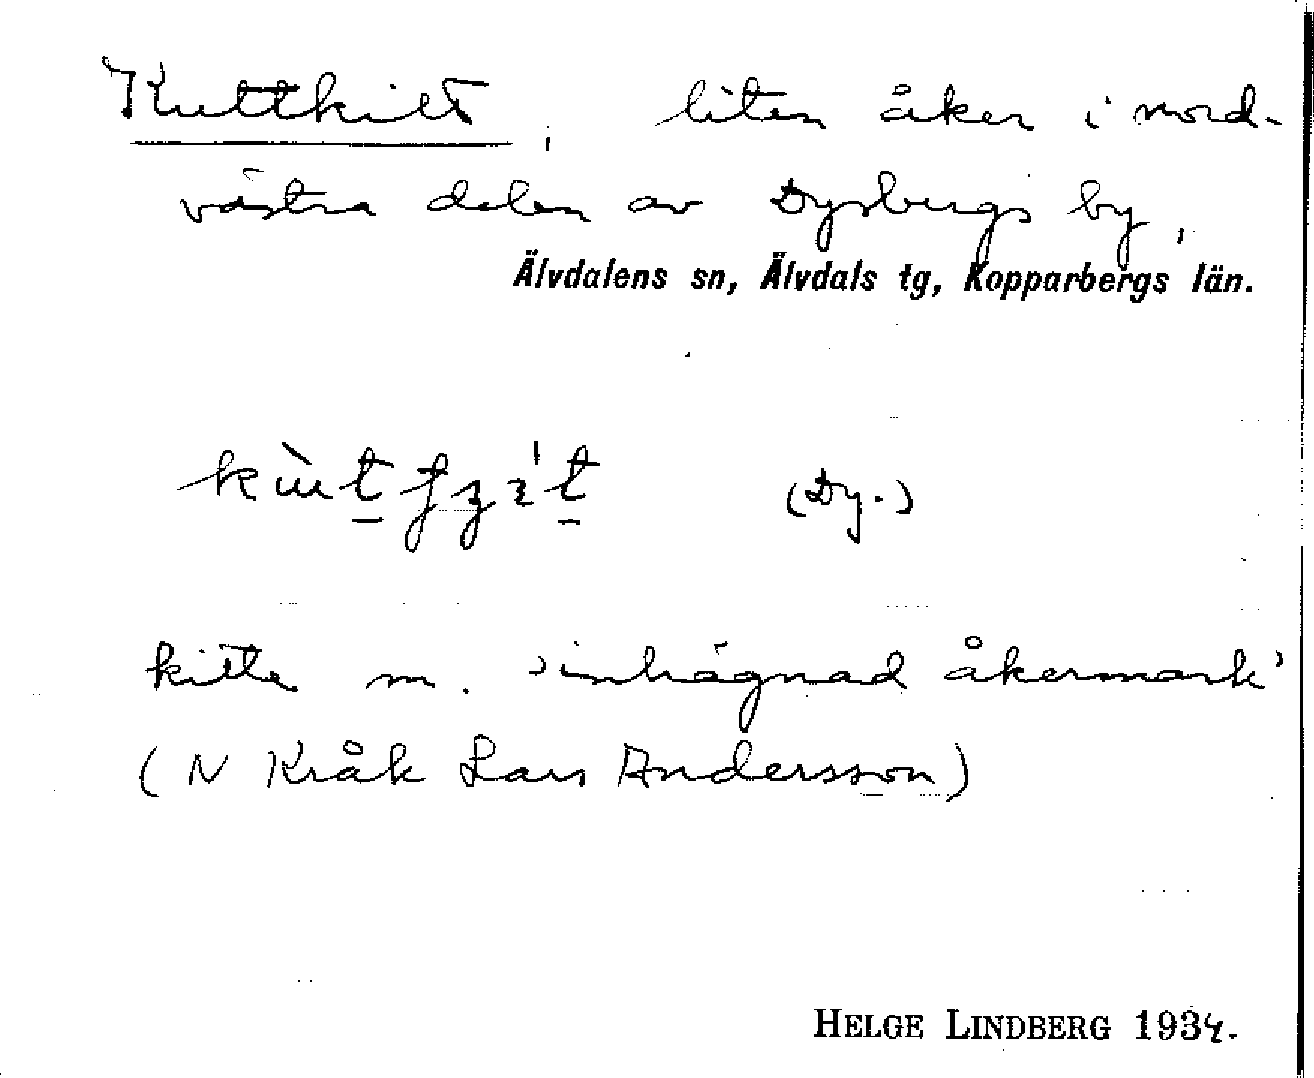 Kuttkitt, liten åker i nord-
västra delen av Dysbergs by,
Älvdalens sn, Älvdals tg, Kopparbergs län.
(Dy.)
kitte m. 'inhägnad åkermark'
(N Kråk Lars Andersson)
HELGE LINDBERG 1934.